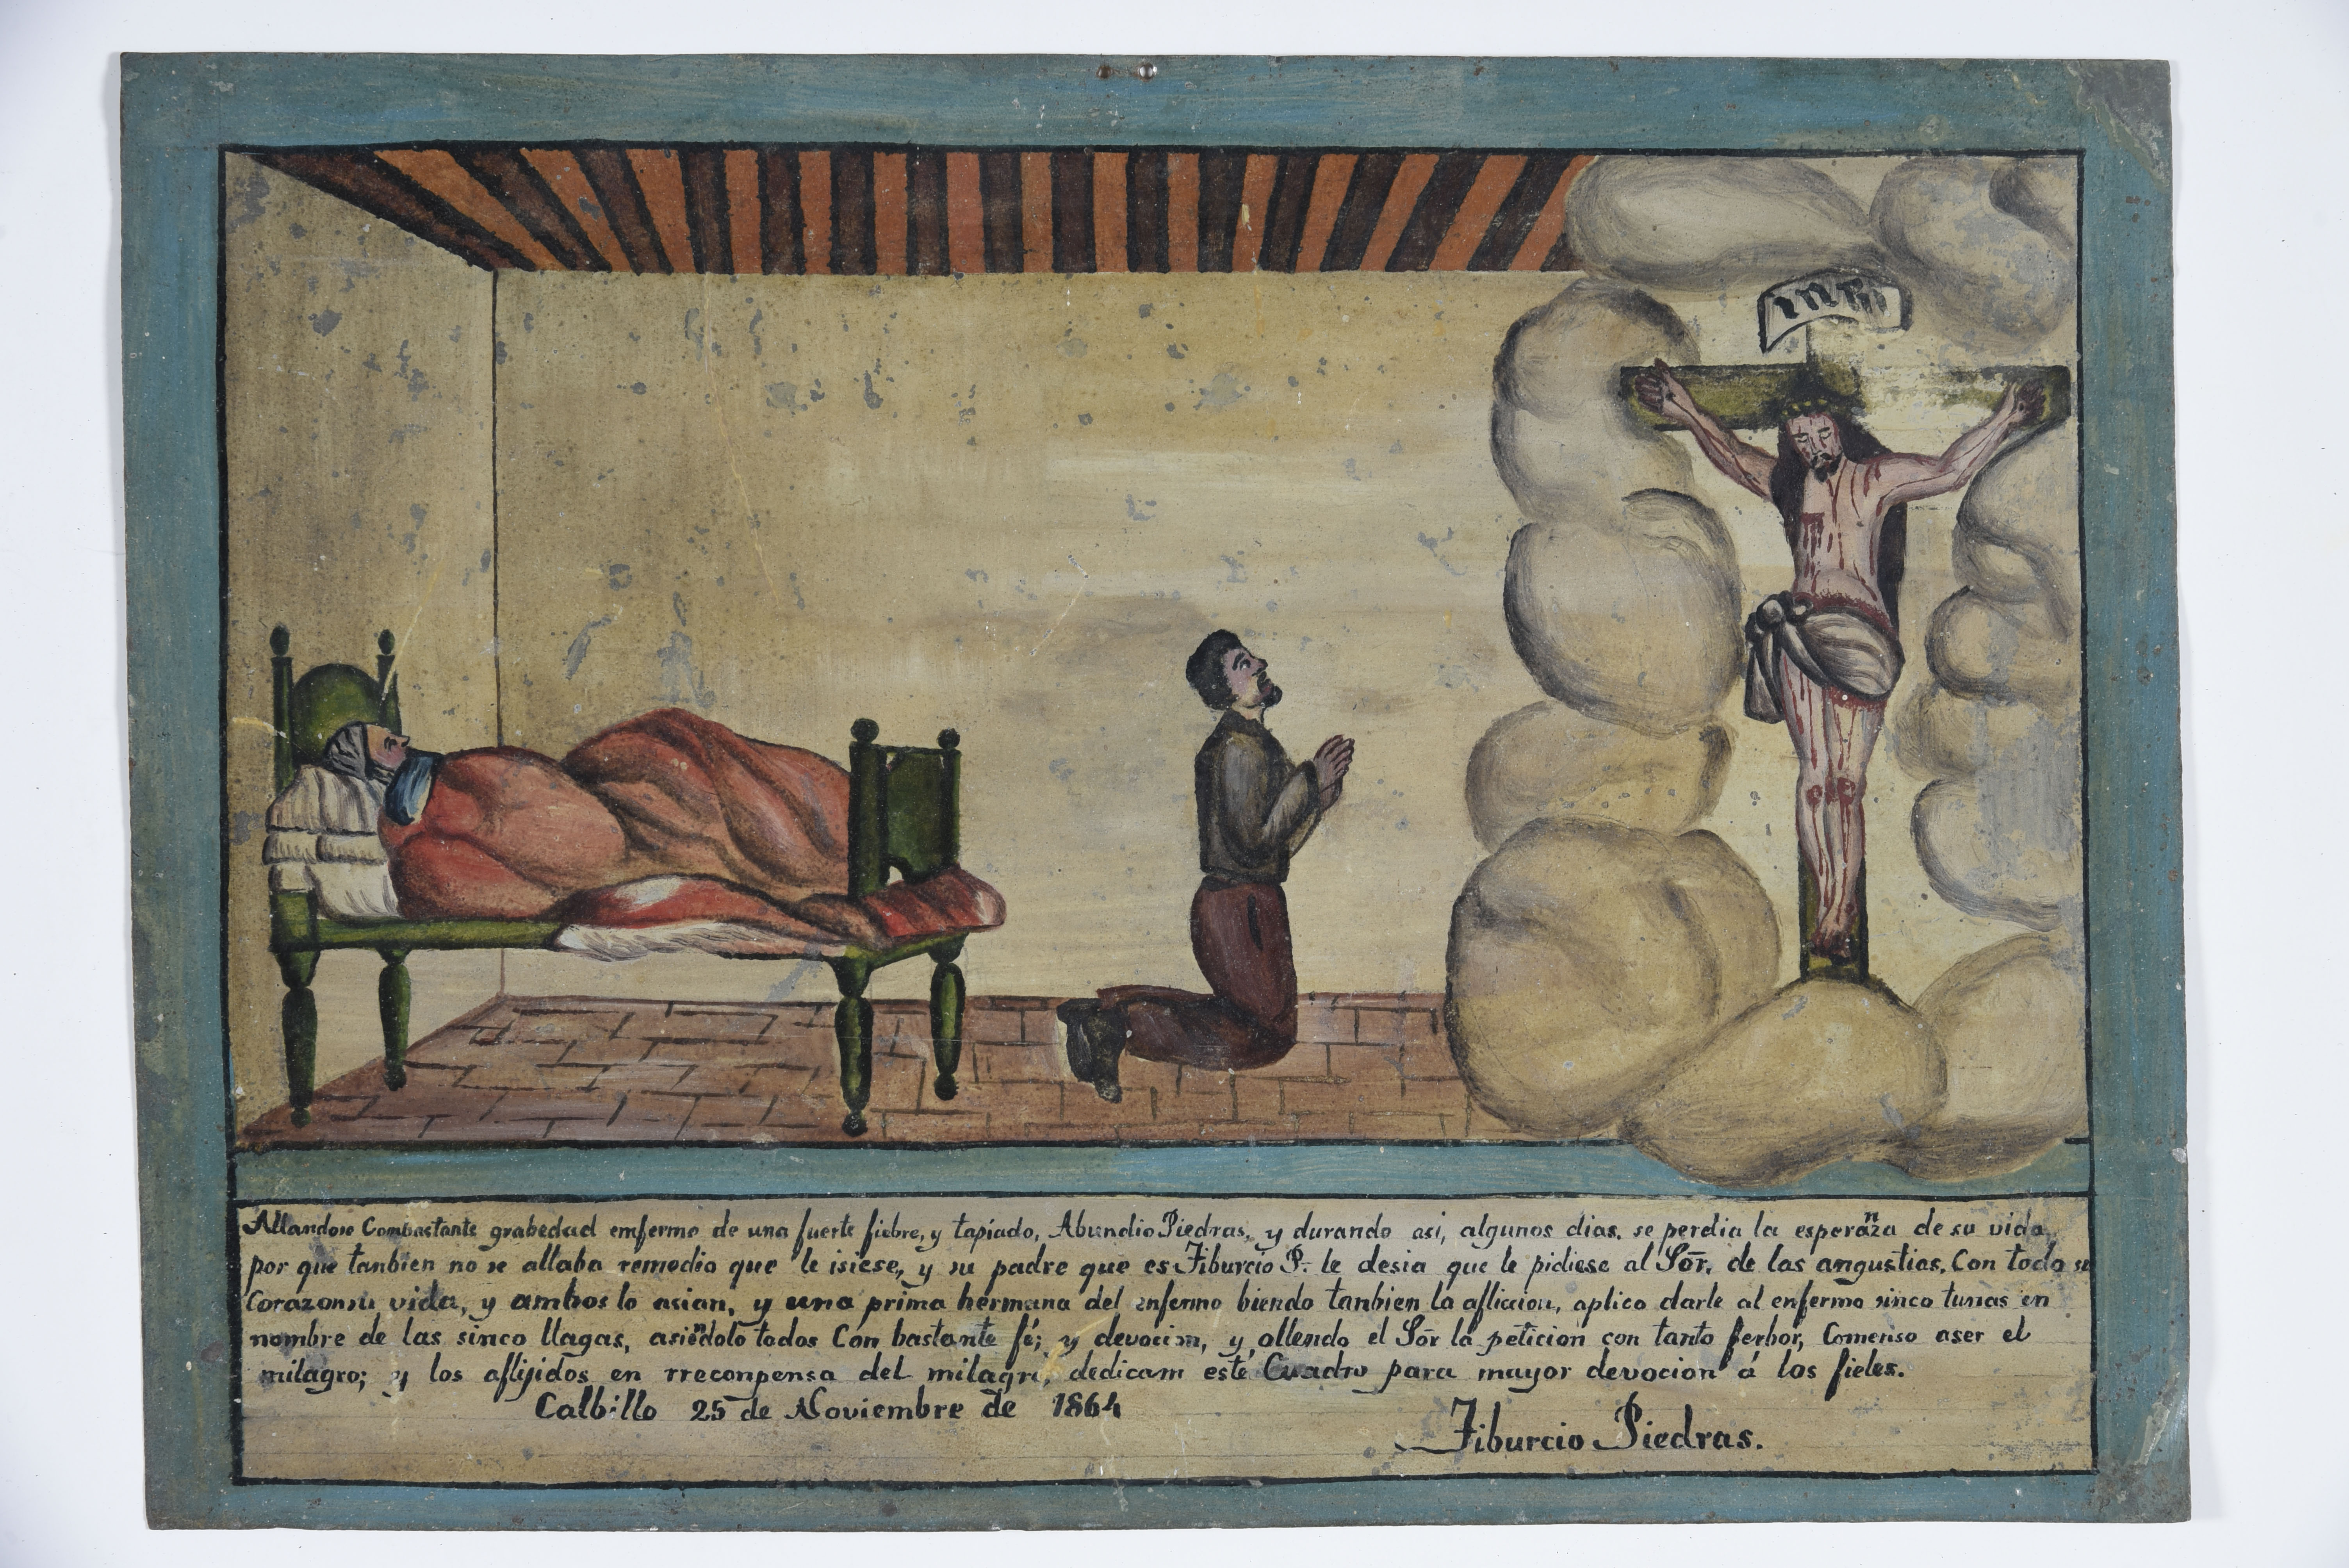 INRI
Allandose Combastante grabedad emfermo de una fuerte fiebre, y tapiado, Abundio Piedras, y durando asi, algunos dias. se perdia la esperanza de su vida,
por que tanbien no se allaba remedio que le isiese, y su padre que es Tiburcio P. le desia que le pidiese al Sōr. de las angustias. Con todo su
Corazon su vida, y ambos lo asian, y una prima hermana del enfermo biendo tanbien la afliccion, aplico darle al enfermo sinco tunas en
nombre de las sinco llagas, asiendolo todos Con bastante fé; y devocion, y ollendo el Sōr la peticion con tanto ferbor, Comenso aser el
milagro; y los aflijidos en rreconpensa del milagro, dedicam este Cuadro para mayor devocion á los fieles.
Calbillo 25 de Noviembre de 1864
Tiburcio Piedras.